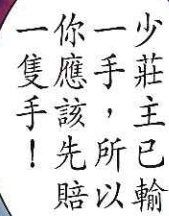 少莊主已輸
一手，所以
你應該先賠
一隻手！